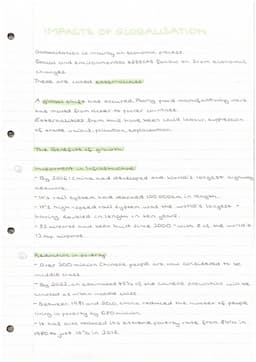 IMPACTS OF GLOBALISATION
Globalisation is mainly an economic process.
Social and environmental effects follow on from economic
changes.
These are called externalities.
A global shift has occured. Many paid manufacturing work
has moved from richer to poorer countries.
Externalities from this have been child labour, suppression
of trade unions, pollution, exploitation.
The Benefits of growth
Investment in infrastructure:
- By 2016 China had developed and world's largest highway
network.
- It's rail system has reached 100000km in length.
- It's high-speed rail system was the world's longest -
having doubled in length in ten years.
- 82 airports had been built since 2000 - with 8 of the world's
12 top airports.
Reduction in poverty:
- Over 300 million Chinese people are now considered to be
middle class
- By 2022, an estimated 45% of the Chinese population will be
classed as urban middle class.
- Between 1981 and 2010, China reduced the number of people
living in poverty by 680 million.
- It has also reduced its extreme poverty rate from 84% in
1980 to just 10% in 2012.